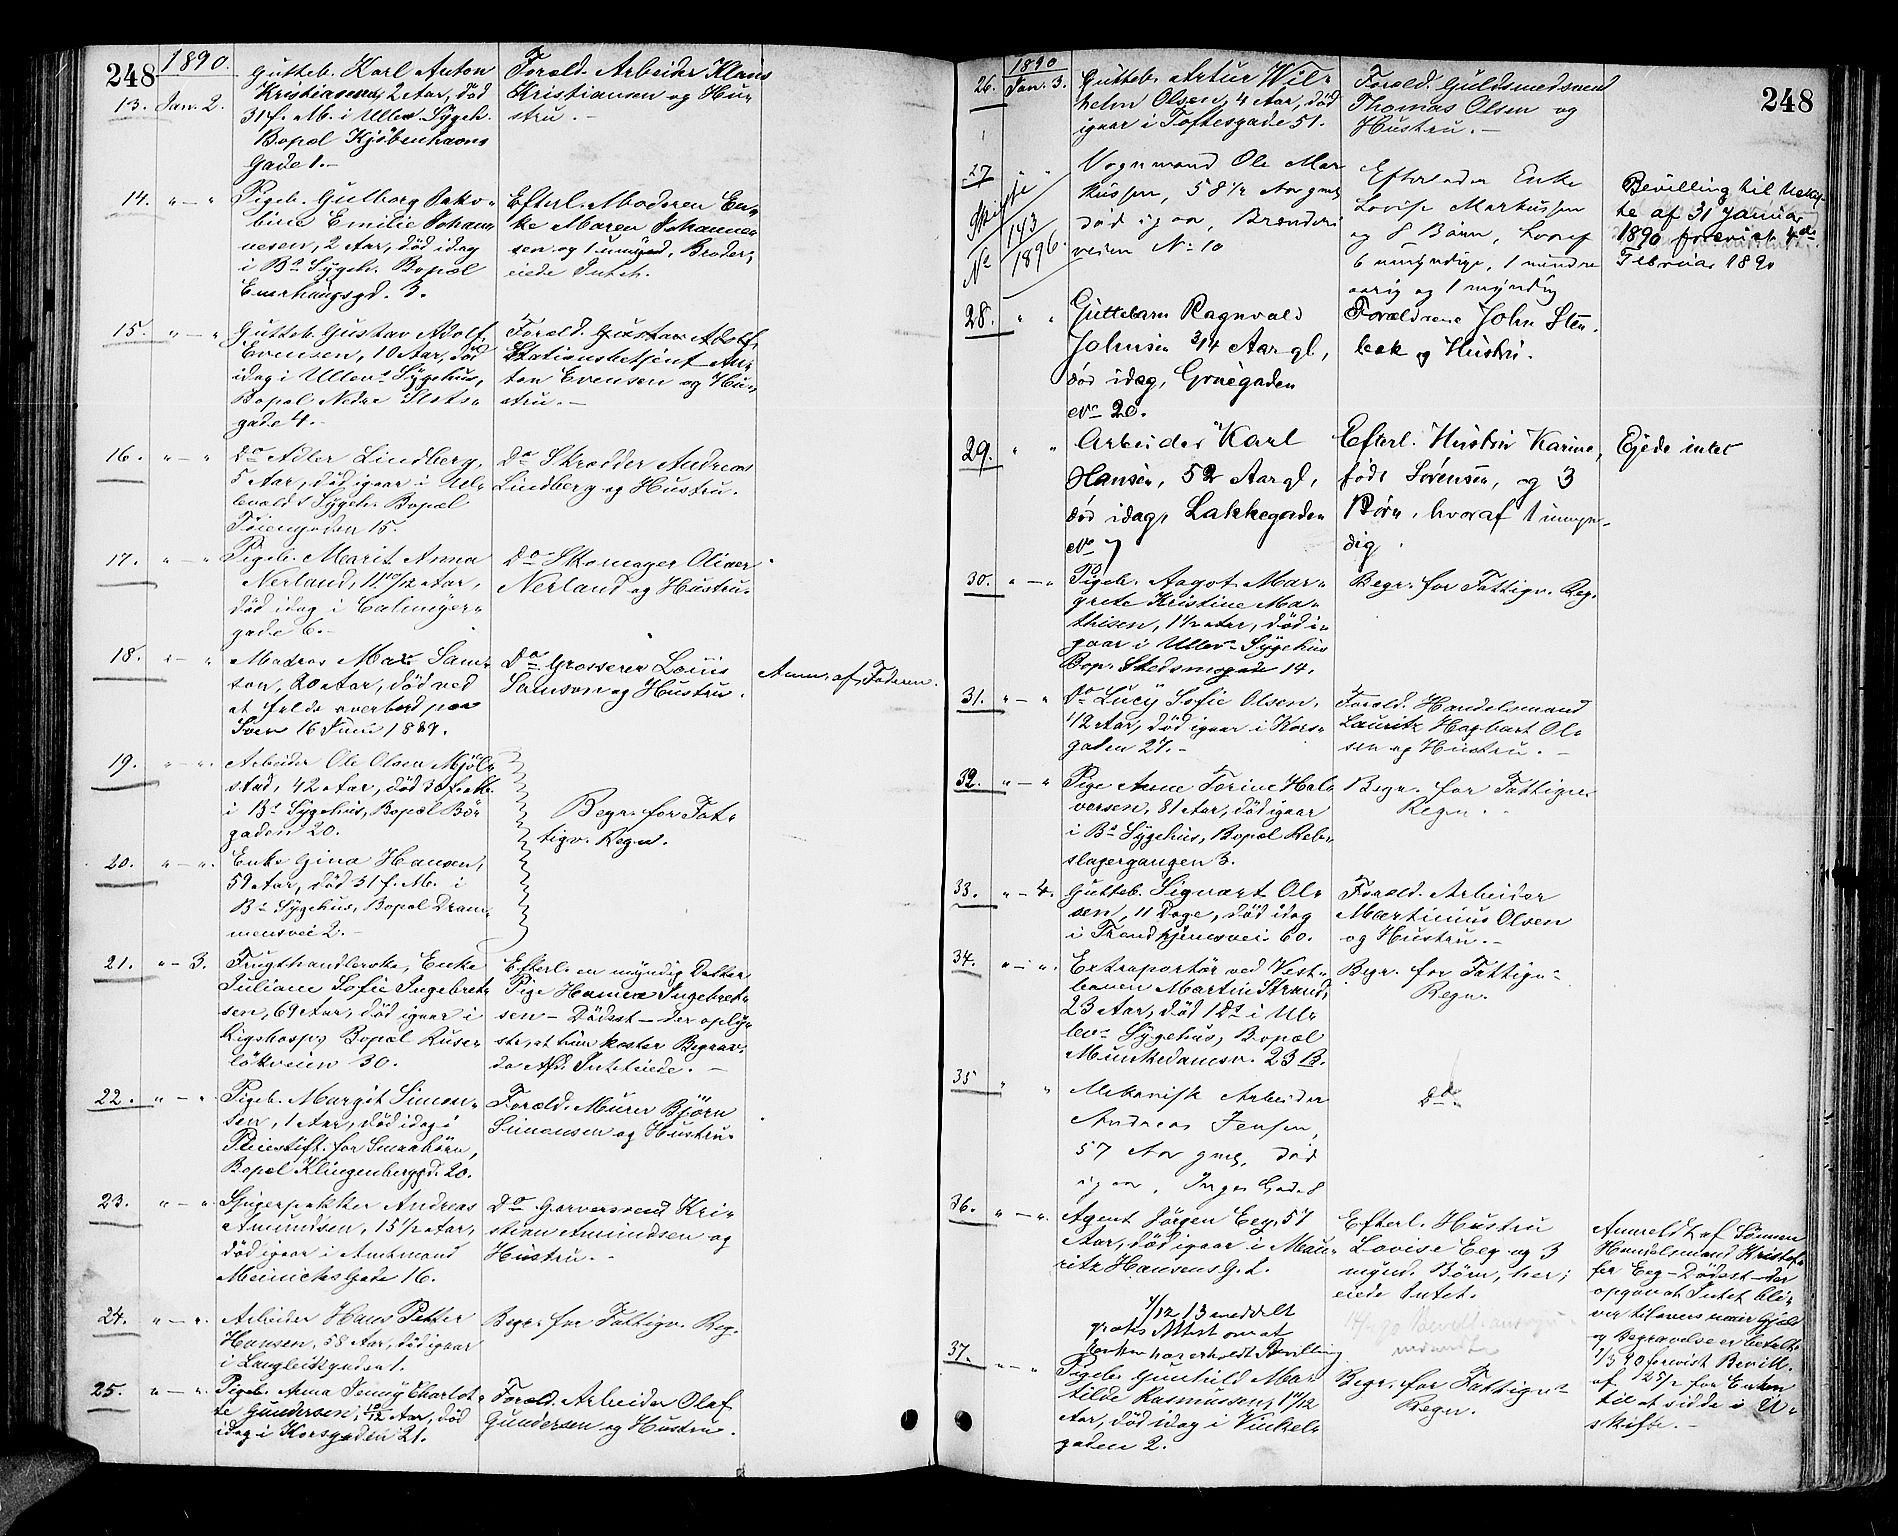 248
1890.
13. Jan. 2.
Gutteb. Karl Anton
Kristiansen, 2 Aar, död
31 f. M. i Ullev. Sygeh.
Bopæl Kjöbenhavns
Gade 1.-
Foræld. Arbeider Klaus
Kristiansen og Hu-
stru.-
14. " - "
Pigeb. Gulborg Jako-
bine Emilie Johan-
nesen, 2 Aar, död idag
i Bs Sygeh. Bopæl
Enerhaugsgd. 3.
Efterl. Moderen En-
ke Maren Johanne-
sen og 1 umynd. Broder;
eiede Intet.
15. " - "
Gutteb. Gustav Adolf
Evensen, 10 Aar, död
idag i Ullevs Sygehus,
Bopæl Nedre Slots-
gade 4.-
Foræld. Gustav Adolf
Stationsbetjent An-
ton Evensen og Hu-
stru.-
16. " - "
Do Adler Lindberg,
5 Aar, död igaar i Ul-
levaals Sygeh. Bopæl
Töiengaden 15.
Do Skrædder Andreas
Lindberg og Hustru.
17. " - "
Pigeb. Marit Anna
Nerland, 11 10/12 Aar,
död idag i Calmeyer-
gade 6.-
Do Skomager Oliver
Nerland og Hustru.
18. " - "
Matros Max Sam-
son, 20 Aar, död ved
at falde overbord paa
Söen 16 Juni 1889.
Do Grosserer Louis
Samson og Hustru.
Anm. af Faderen.
19. " - "
Arbeider Ole Olsen Mjöl-
stad, 42 Aar, död 30 f. M.
i Bs Sygehus, Bopæl Bör-
gaden 20.
Begr. for Fat-
tigv. Regn.
20. " - "
Enke Gina Hansen,
59 Aar, död 31 f. M. i
Bs Sygehus, Bopæl Dram-
mensvei 2.-
21. " - 3.
Frugthandlerske, Enke
Juliane Sofie Ingebret-
sen, 69 Aar, död igaar i
Rigshosp., Bopæl Ruser-
lökveien 30.
Efterl. en myndig Datter
Pige Hanna Ingebret-
sen - Dödsat - der oply-
ste, at hun koster Begrav.
da Afd. Intet eiede.-
22. " - "
Pigeb. Margit Simon-
sen, 1 Aar, död idag i
Pleiestift. for Smaabörn,
Bopæl Klingenberggd. 20.
Foræld. Murer Björn
Simonsen og Hustru.
23. " - "
Spigerpakker Andreas
Amundsen, 15 1/2 Aar,
död igaar i Amtmand
Meinichs Gade 16.
Do Garversvend Kri-
stian Amundsen og
Hustru.-
24. " - "
Arbeider Hans Petter
Hansen, 58 Aar, död igaar
i Langleiksgaden 1.
Begr. for Fattigv. Reg.
25. " - "
Pigeb. Anna Jenny Charlot-
te Gundersen, 10/12 Aar, död
idag i Korsgaden 21.
Foræld. Arbeider Olaf
Gundersen og Hustru.
248
1890
26. Jan. 3.
Gutteb. Artur Wil-
helm Olsen, 4 Aar, död
igaar i Toftesgade 51.
Foræld. Guldsmedsvend
Thomas Olsen og
Hustru.-
27 " "
Skifte
No 143/1896.
Vognmand Ole Mar
kussen, 58 1/2 Aar gml.
död igaar, Brænderi
veien No 10
Efterlader Enke
Lovise Markussen
og 8 Börn, hvoraf
6 umyndige, 1 mindre
aarig og 1 myndig
Bevilling til Uskif-
te af 31 Januar
1890 forevist 4de
Februar 1890
28. " "
Guttebarn Ragnvald
Johnsen 3/4 Aar gl,
död idag, Grüegaden
No 20.
Forældrene John Sten-
bæk og Hustru.
29. " "
Arbeider Karl
Hansen, 52 Aar gl,
död idag, Lakkegaden
No 7
Efterl. Hustru Karine,
födt Sörensen, og 3
Börn, hvoraf 1 umyn-
dig.
Ejede intet
30. " - "
Pigeb. Aagot Mar-
grete Kristine Ma-
thisen, 1 1/2 Aar, död i-
gaar i Ullevs Sygehus
Bop. Skedsmogade 14.
Begr. for Fattigv. Reg.
31. " - "
Do Lucy Sofie Olsen,
1/2 Aar, död igaar i Kors-
gaden 27.-
Foræld. Handelsmand
Lauritz Hagbart Ol-
sen og Hustru.-
32. " - "
Pige Anne Torine Hal-
vorsen, 81 Aar, död igaar
i Bs Sygehus, Bopæl Reb-
slagergangen 3.
Begr. for Fattigv.
Regn.
33. " - 4.
Gutteb. Sigvart Ol-
sen, 11 Dage, död idag
i Trondhjemsvei 60.
Foræld. Arbeider
Martinius Olsen
og Hustru.-
34. " - "
Extraportör ved Vest-
banen Martin Strand,
23 Aar, död 1 Ds i Ul-
levs Sygehus, Bopæl
Munkedamsv. 23 B.
Begr. for Fattigv-
Regn.
35 " "
Mekanisk Arbeider
Andreas Jensen,
57 Aar gml, död
igaar, Inges Gade 8
Do
36. " - "
Agent Jörgen Eeg, 57
Aar, död igaar i Mau-
ritz Hansens G. 1.
4/12 13 meddelt
gratis Attest om at
Enken har erholdt Bevilling
Efterl. Hustru
Lovise Eeg og 3
mynd. Börn, her;
eiede Intet.
Anmeldt af Sönnen
Handelsmand Kristof-
fer Eeg - Dödsat - der
opgav at Intet bli-
ver tilovers naar Gjæld
og Begravelse er betalt.
1/3 90 forevist Bevill.
af 25/2 for Enken
til at sidde i U-
skifte.-
37. " - "
Pigeb. Gunhild Ma-
tilde Rasmussen, 1 11/12
Aar, död idag i Vinkel-
gaden 2.
Begr. for Fattigv-
Regn.